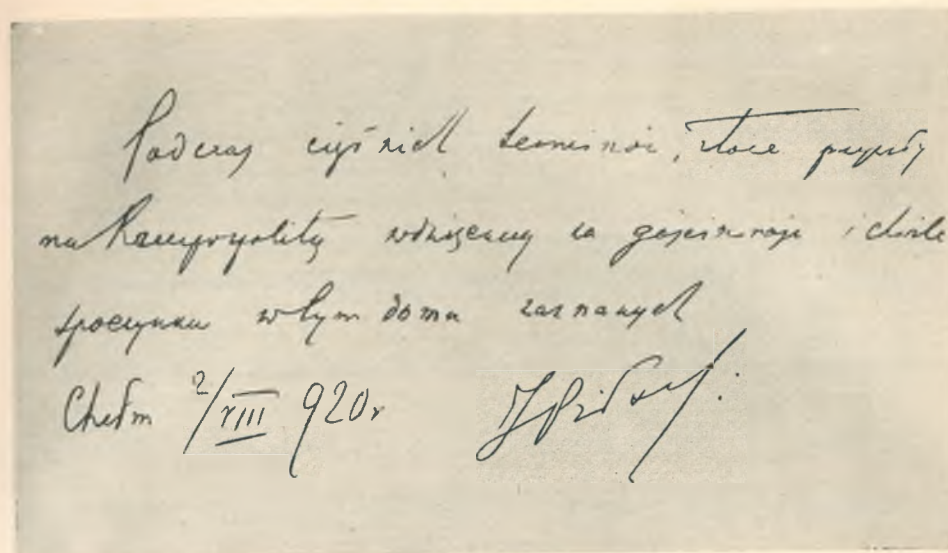 Podczas ciężkich terminów, które przyszły
na Rzeczypospolitę wdzięczny za gościnność i chwile
spoczynku w tym domu zaznanych
Chełm 2/VIII 920 r
J Piłsudski